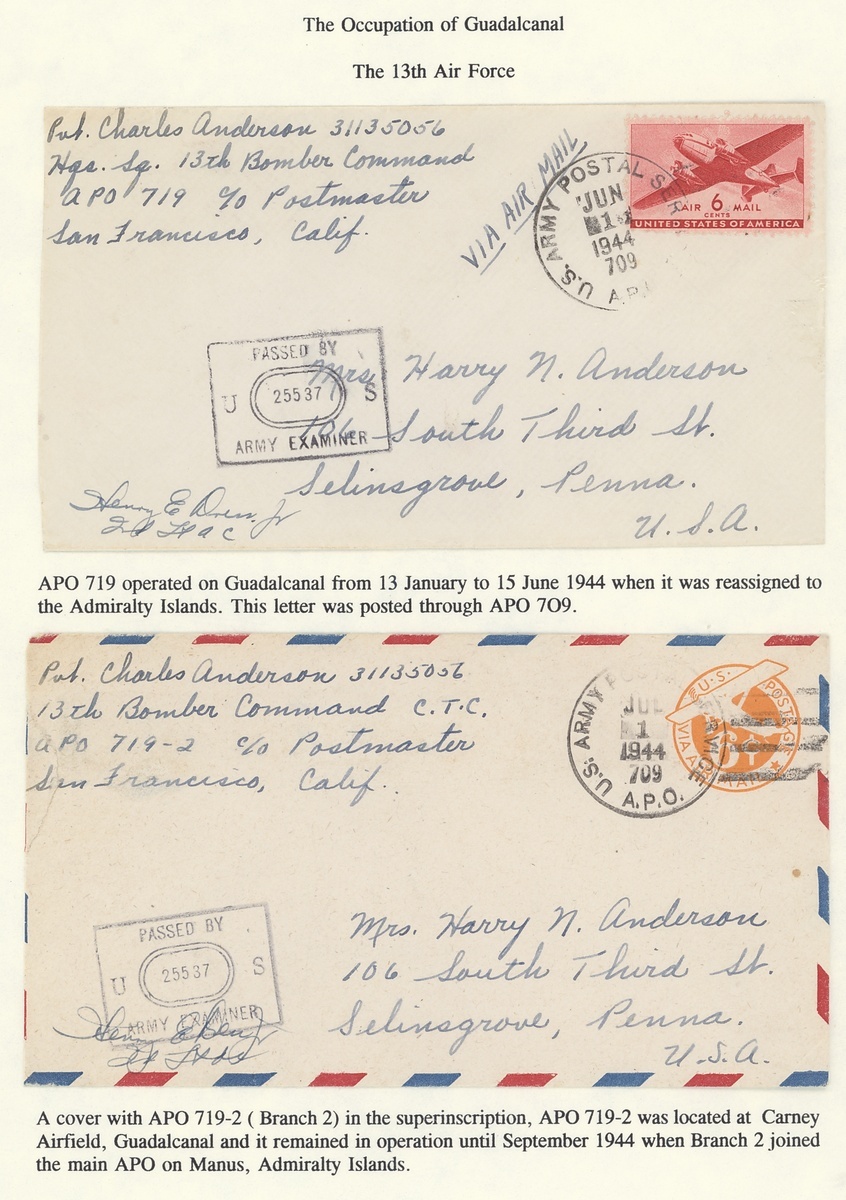 The Occupation of Guadalcanal
The 13th Air Force
Pvt. Charles Anderson 31135056
Hqs. Sq. 13th Bomber Command
APO 719 c/o Postmaster
San Francisco, Calif.
VIA AIR MAIL
U.S. ARMY POSTAL SER
JUN
1944
709
A.P.
AIR 6 MAIL
CENTS
UNITED STATES OF AMERICA
PASSED BY
U 25537 S
ARMY EXAMINER
Mrs. Harry N. Anderson
106 South Third St.
Selinsgrove, Penna.
U.S.A.
Henry E
APO 719 operated on Guadalcanal from 13 January to 15 June 1944 when it was reassigned to
the Admiralty Islands. This letter was posted through APO 7O9.
Pvt. Charles Anderson 31135056
13th Bomber Command C.T.C.
APO 719-2 c/o Postmaster
San Francisco, Calif.
U.S. ARMY
JUL
1
1944
709
A.P.O.
U.S. POSTAGE
VIA AIR
PASSED BY
U 25537 S
ARMY EXAMINER
Henry
Mrs. Harry N. Anderson
106 South Third St.
Selinsgrove, Penna.
U.S.A.
A cover with APO 719-2 ( Branch 2) in the superinscription, APO 719-2 was located at Carney
Airfield, Guadalcanal and it remained in operation until September 1944 when Branch 2 joined
the main APO on Manus, Admiralty Islands.